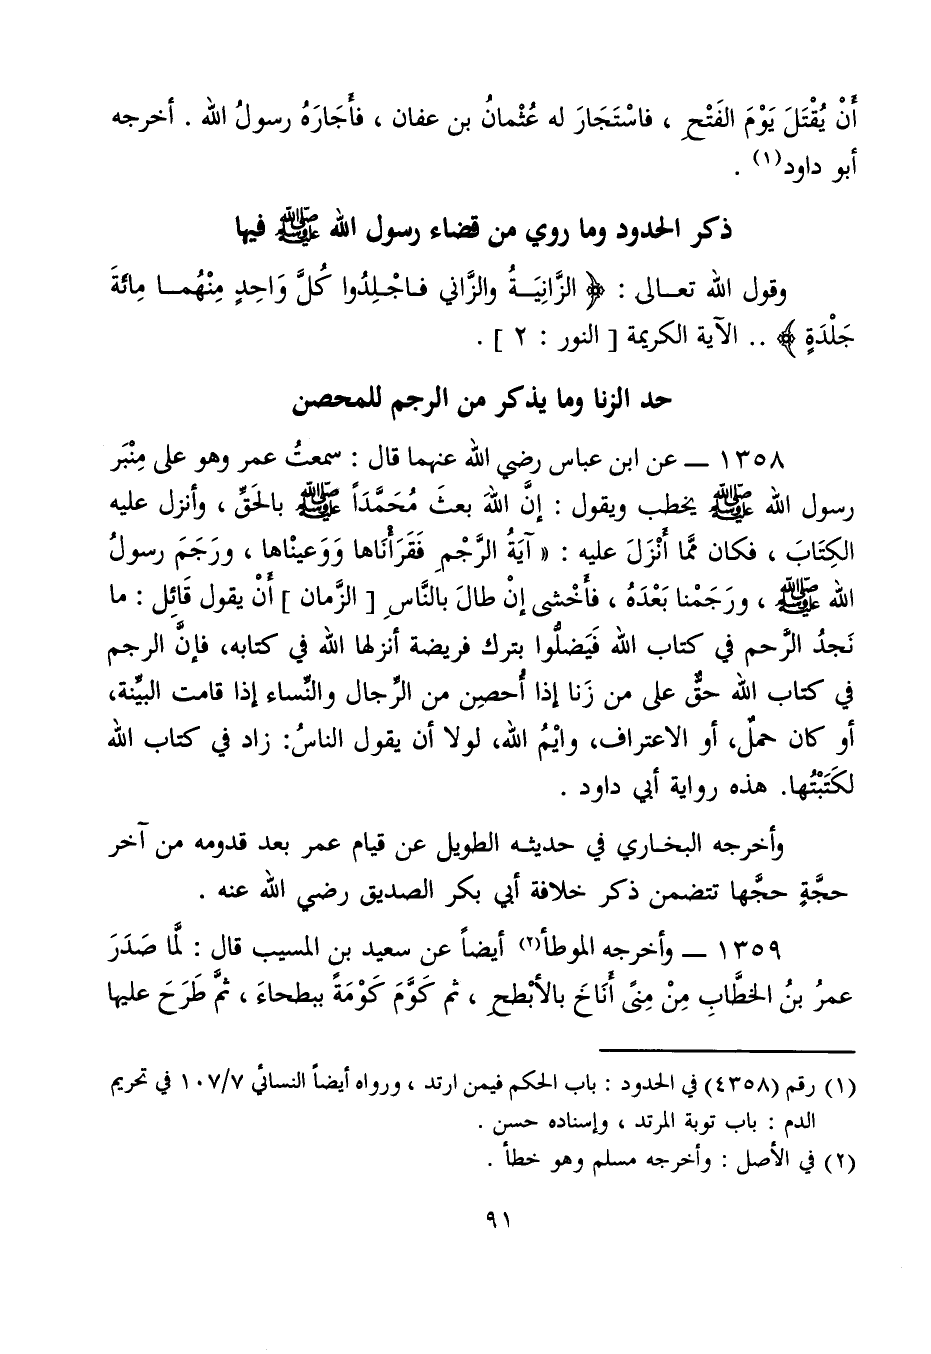 أَنْ يُقْتَلَ يَوْمَ الفَتْحِ ، فاسْتَجَارَ له عُثْمانُ بن عفان ، فأَجَارَهُ رسولُ الله . أخرجه
أبو داود(١) .
ذكر الحدود وما روي من قضاء رسول الله ﷺ فيها
وقول الله تعـالى : ﴿ الزَّانِيَـةُ والزَّاني فـاجْلِـدُوا كُلَّ وَاحِدٍ مِنْهُمـا مِائةَ
جَلْدَةٍ ﴾ .. الآية الكريمة [ النور : ٢ ] .
حد الزنا وما يذكر من الرجم للمحصن
١٣٥٨ ــ عن ابن عباس رضي الله عنهما قال : سمعتُ عمر وهو على مِنْبَر
رسول الله ﷺ يخطب ويقول : إنَّ اللهَ بعثَ مُحَمَّدَاً ﷺ بالحَقِّ ، وأنزل عليه
الكِتَابَ ، فكان مَّا أَنْزَلَ عليه : « آيَةُ الرَّجْمِ فَقَرَأْنَاها وَوَعيْناها ، ورَجَمَ رسولُ
الله ﷺ ، ورَجَمْنا بَعْدَهُ ، فأَخْشى إنْ طالَ بالنَّاسِ [ الزَّمان ] أَنْ يقول قَائِل : ما
نَجدُ الرَّحم في كتاب الله فَيَضلُّوا بترك فريضة أنزلها الله في كتابه، فإنَّ الرجم
في كتاب الله حقٌّ على من زَنا إذا أُحصِن من الرِّجال والنِّساء إذا قامت البيِّنة،
أو كان حملٌ، أو الاعتراف، وايْمُ الله، لولا أن يقول الناسُ: زاد في كتاب الله
لكَتَبْتُها. هذه رواية أبي داود .
وأخرجه البخاري في حديثه الطويل عن قيام عمر بعد قدومه من آخر
حجَّةٍ حجَّها تتضمن ذكر خلافة أبي بكر الصديق رضي الله عنه .
١٣٥٩ ــ وأخرجه الموطأ(٢) أيضاً عن سعيد بن المسيب قال : لمَّا صَدَرَ
عمرُ بنُ الخطَّابِ مِنْ مِنىً أَنَاخَ بالأبْطحِ ، ثم كَوَّمَ كَوْمَةً ببطحاءَ ، ثمَّ طَرَحَ عليها
(١) رقم (٤٣٥٨) في الحدود : باب الحكم فيمن ارتد ، ورواه أيضاً النسائي ١٠٧/٧ في تحريم
الدم : باب توبة المرتد ، وإسناده حسن .
(٢) في الأصل : وأخرجه مسلم وهو خطأ .
٩١